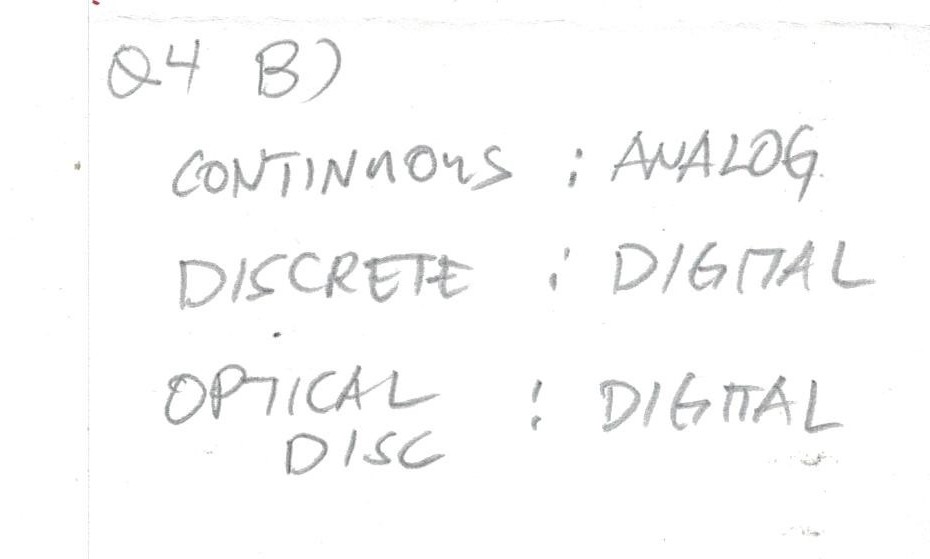 Q4 B)
CONTINUOUS : ANALOG
DISCRETE : DIGITAL
OPTICAL : DIGITAL
DISC